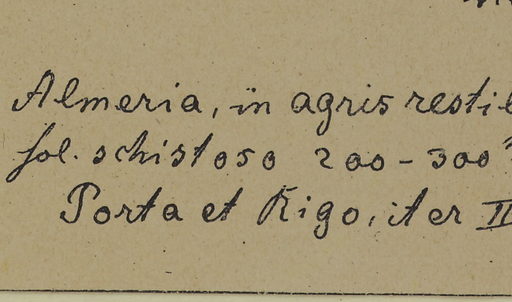 Almeria, in agris restib
sol. schistoso 200-300
Porta et Rigo, iter II